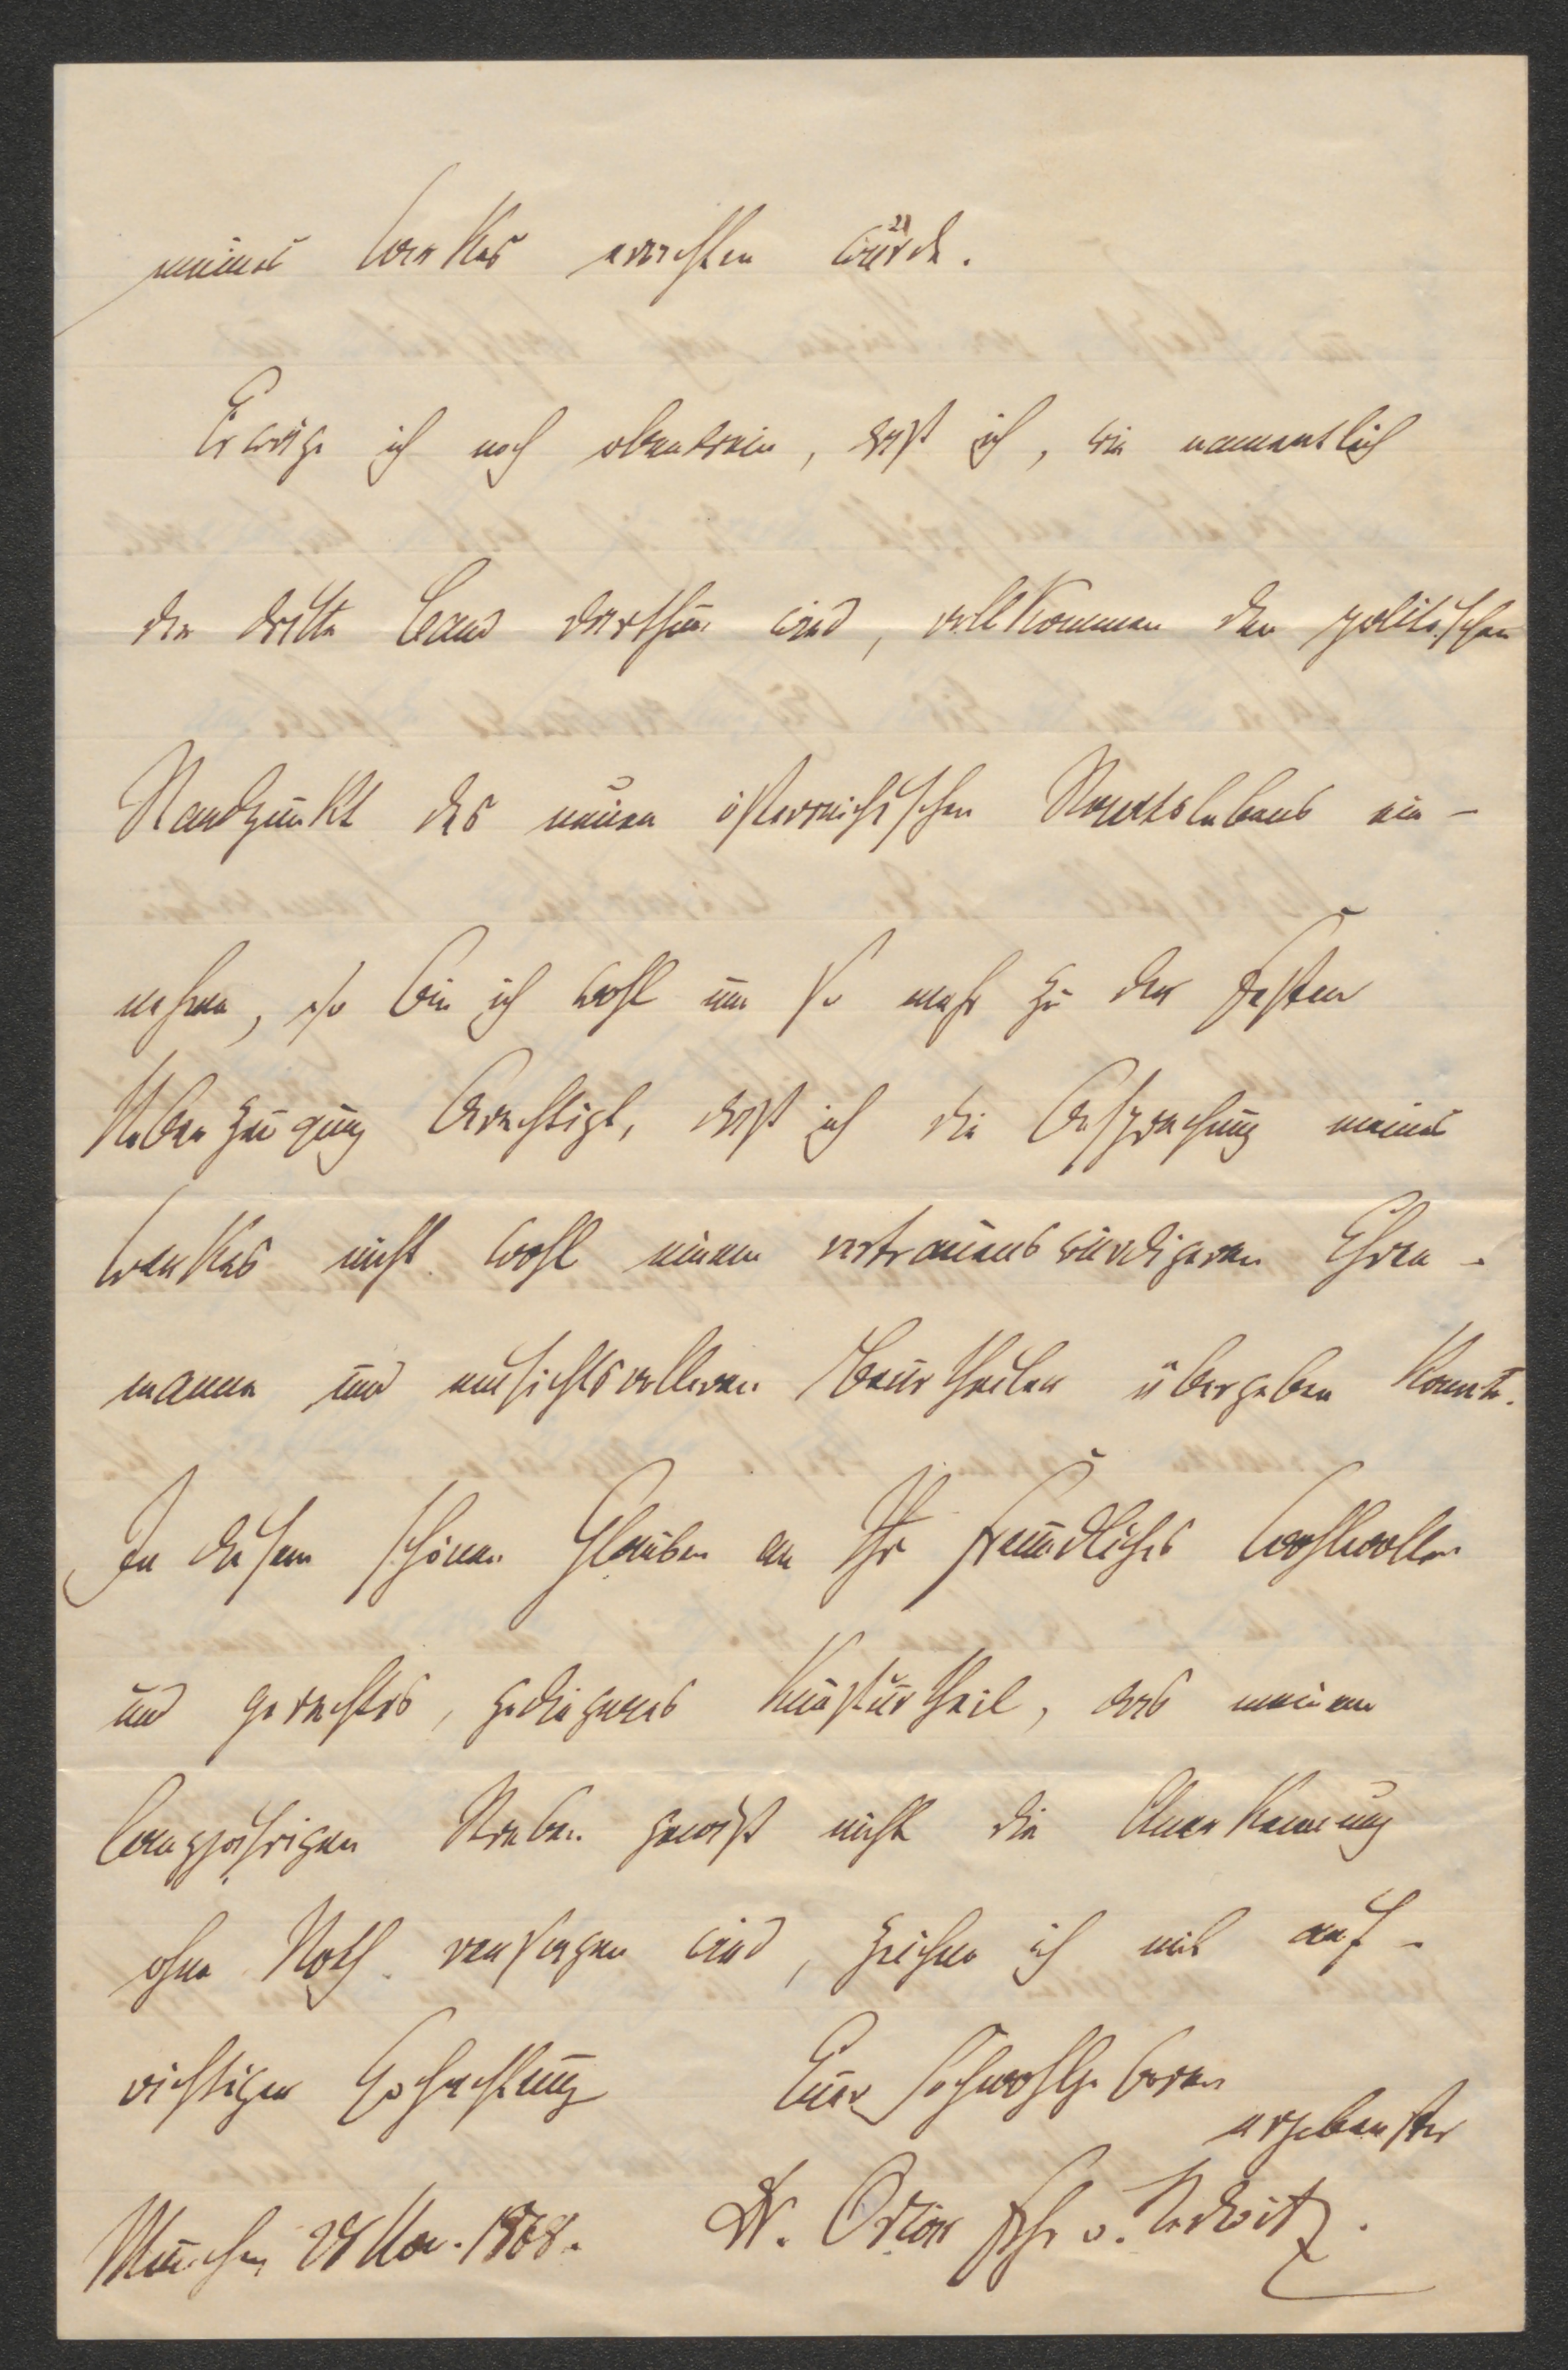 meines Werkes erachten würde.
Erwäge ich noch obendrein, daß ich, wie namentlich
der dritte Band darthun wird, vollkommen den politischen
Standpunkt des neuen österreichischen Staatslebens ein-
nehme, so bin ich wohl um so mehr zu der festen
Ueberzeugung berechtigt, daß ich die Besprechung meines
Werkes nicht wohl einem vertrauenswürdigeren Ehren-
manne und einsichtsvolleren Beurtheiler übergeben konnte.
In diesem schönen Glauben an Ihr freundliches Wohlwollen
und gerechtes, gediegenes Kunsturtheil, das meinem
langjährigen Streben gewiß nicht die Anerkennung
ohne Noth versagen wird, zeichne ich mit auf-
richtiger Hochachtung Euer Hochwohlgeboren
ergebenster
München 28 Nov. 1868. Dr. Frhr v.